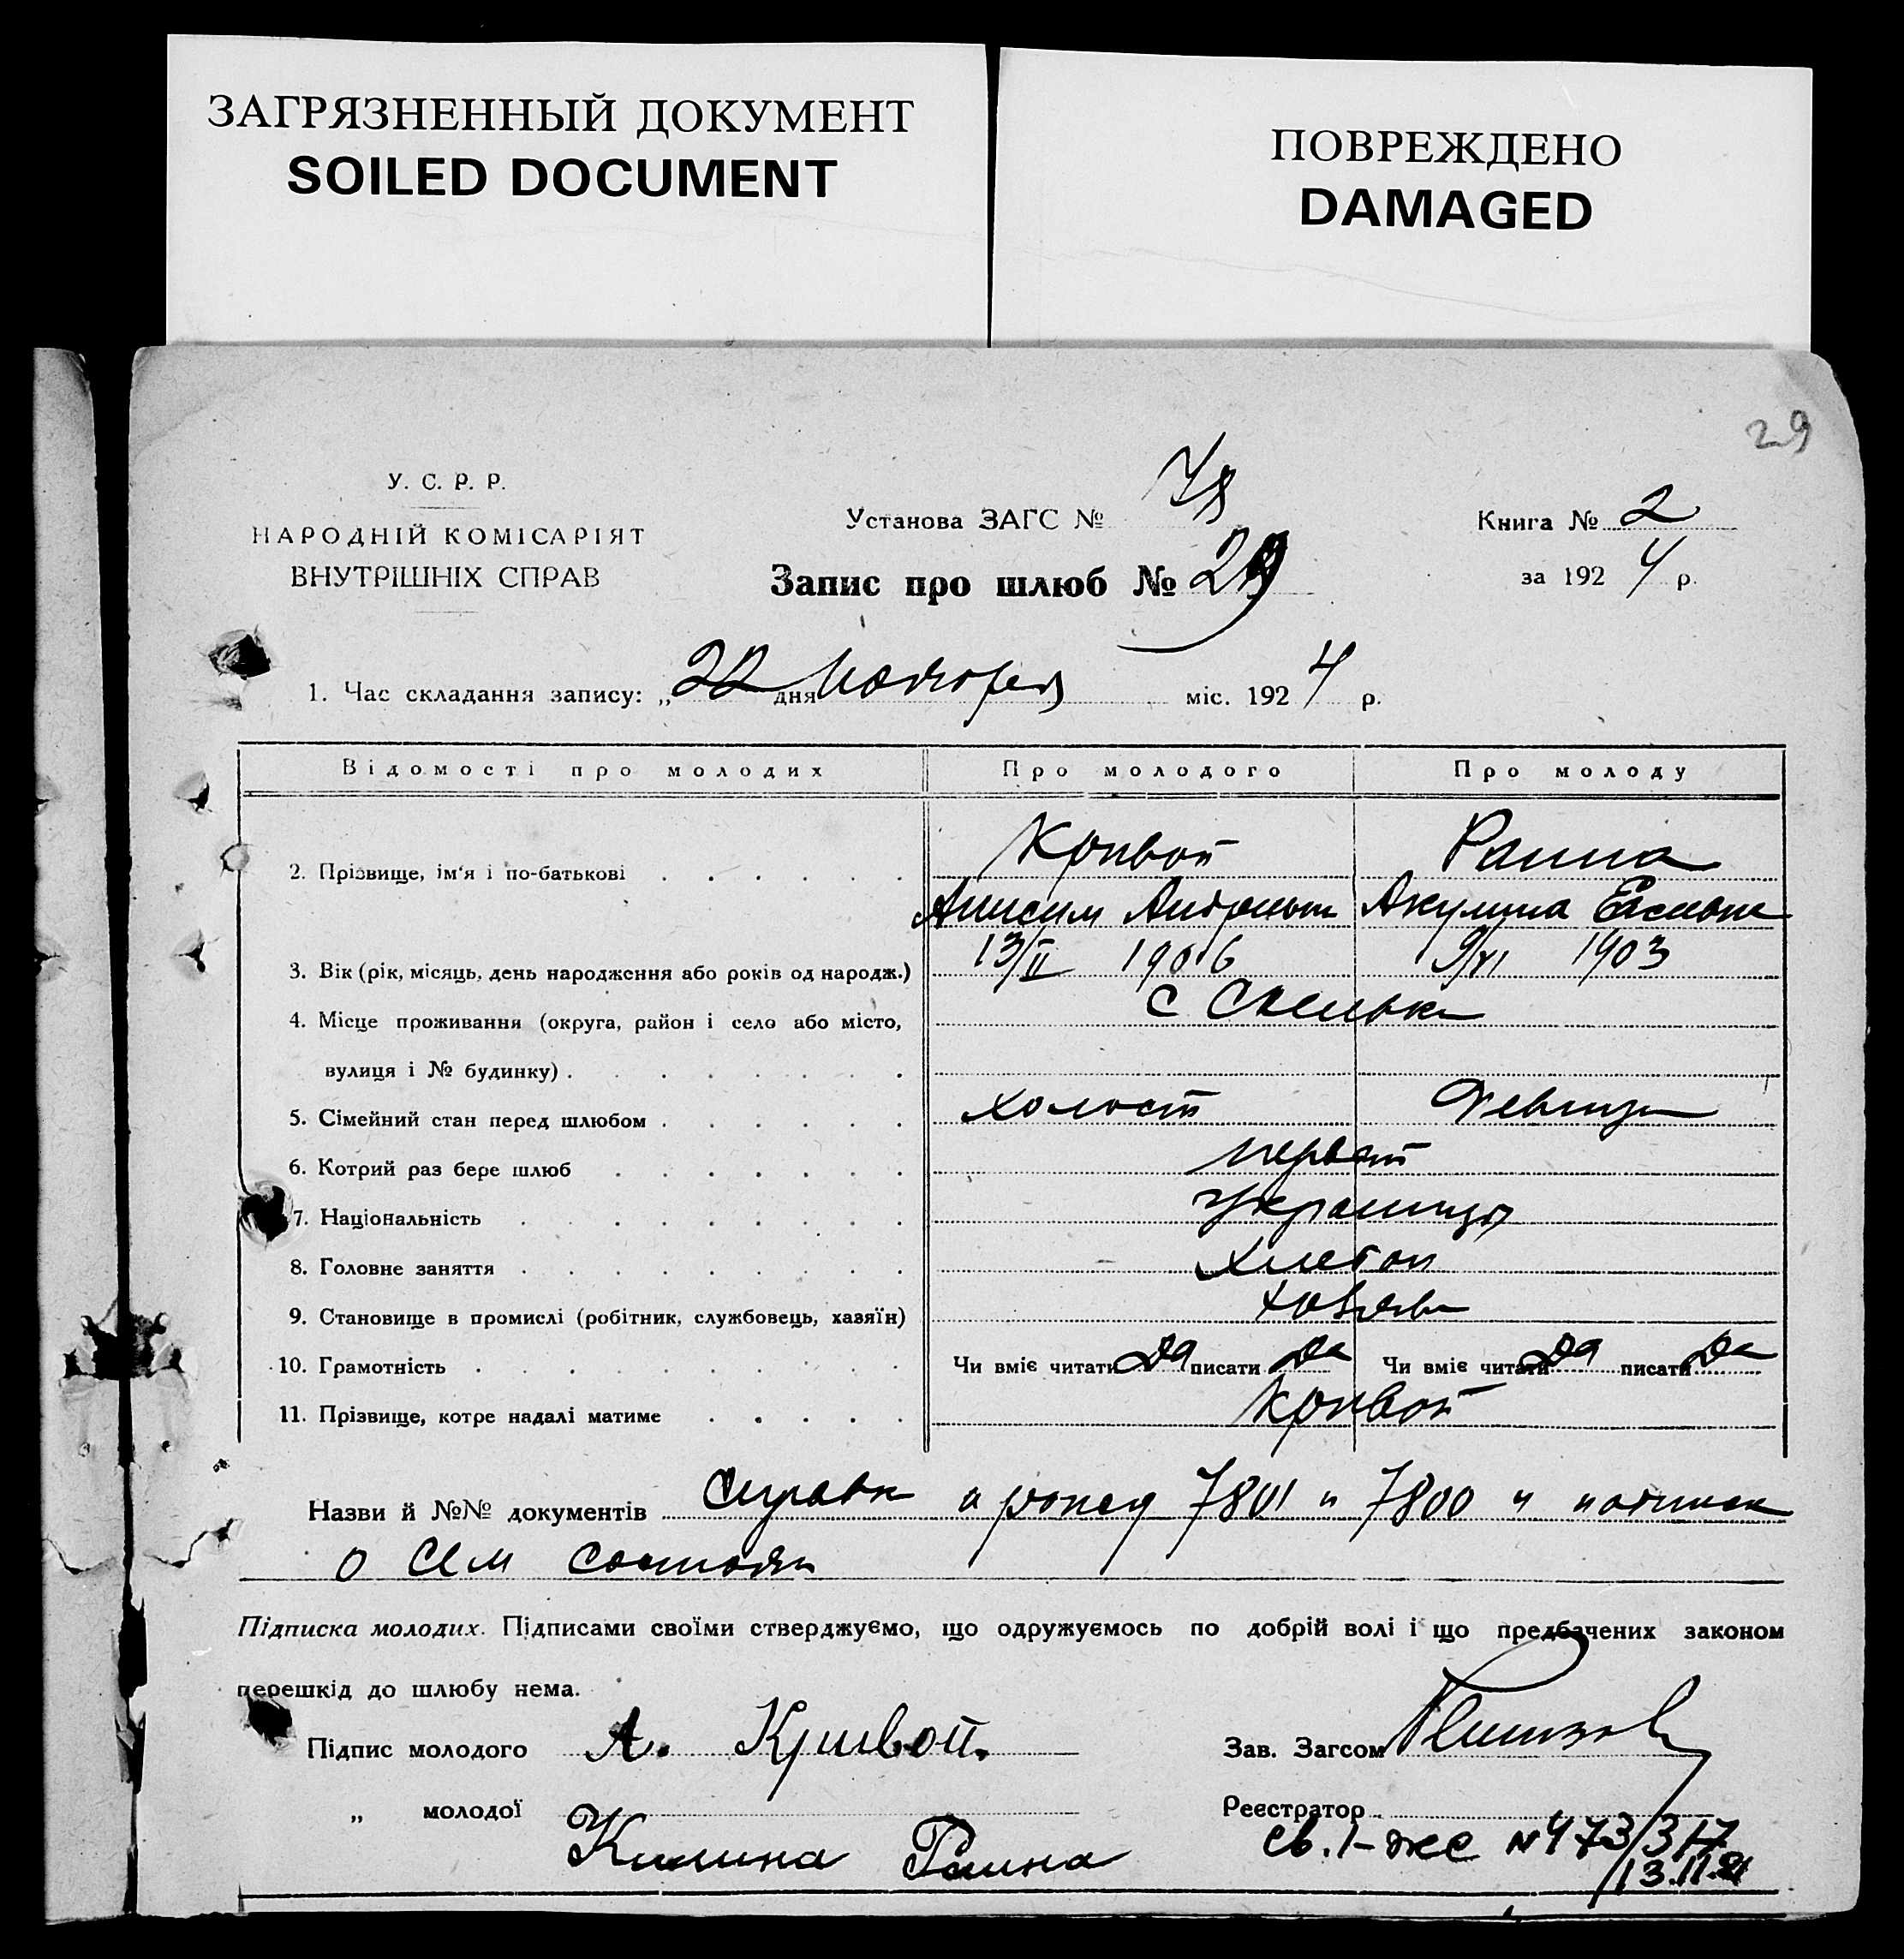 ЗАГРЯЗНЕННЫЙ ДОКУМЕНТ
SOILED DOCUMENT
ПОВРЕЖДЕНО
DAMAGED
29
У. С. Р. Р.
НАРОДНІЙ КОМІСАРІЯТ
ВНУТРІШНІХ СПРАВ
Установа ЗАГС №
Запис про шлюб № 29
Книга № 2
за 1924 р.
1. Час складання запису: „22 дня Ноября міс. 1924 р.
Відомості про молодих Про молодого Про молоду
2. Прізвище, ім'я і по-батькові Кривой Раина
Анисим Акулина
3. Вік (рік, місяць, день народження або років од народж.) 13/II 1906 9/VI 1903
4. Місце проживання (округа, район і село або місто, с Скельки
вулиця і № будинку)
5. Сімейний стан перед шлюбом холост девица
6. Котрий раз бере шлюб первый
7. Національність украинцы
8. Головне заняття хлебоп
9. Становище в промислі (робітник, службовець, хазяїн) хозяев
10. Грамотність Чи вміє читати Да писати Да Чи вміє читати Да писати Да
11. Прізвище, котре надалі матиме Кривой
Назви й №№ документів Справк о рожд 7801 и 7800 и
о сем состоян
Підписка молодих. Підписами своїми стверджуємо, що одружуємось по добрій волі і що предбачених законом
перешкід до шлюбу нема.
Підпис молодого А. Кривой. Зав. Загсом
„ молодої Реєстратор
Килина Раина
св. І-же № 473/317
13.11.